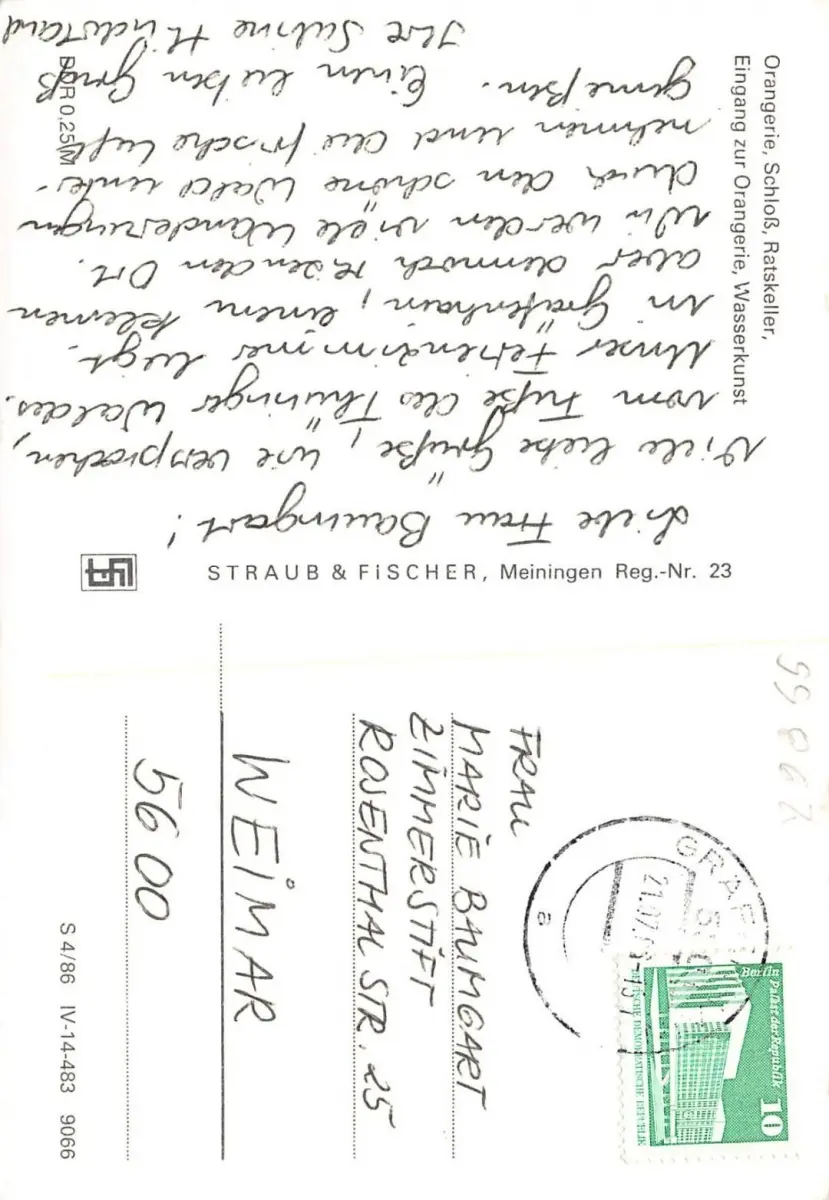 Orangerie, Schloß, Ratskeller,
Eingang zur Orangerie, Wasserkunst
DDR 0,25 M
STRAUB & FISCHER, Meiningen Reg.-Nr. 23
Liebe Frau Baumgart!
Viele liebe Grüße, wie versprochen,
vom Fuße des Thüringer Waldes.
Unser Ferienzimmer liegt
in Gräfenhain, einem kleinen
aber dennoch reizenden Ort.
Wir werden viele Wanderungen
durch den schöne Wald unter-
nehmen und die frische Luft
genießen. Einen lieben Gruß
Ihre Sabine
99867
GRÄF
21.07.
a
Berlin Palast der Republik
10
DEUTSCHE DEMOKRATISCHE REPUBLIK
FRAU
MARIE BAUMGART
ZIMMERSTIFT
ROSENTHAL STR. 25
WEIMAR
5600
S 4/86 IV-14-483 9066